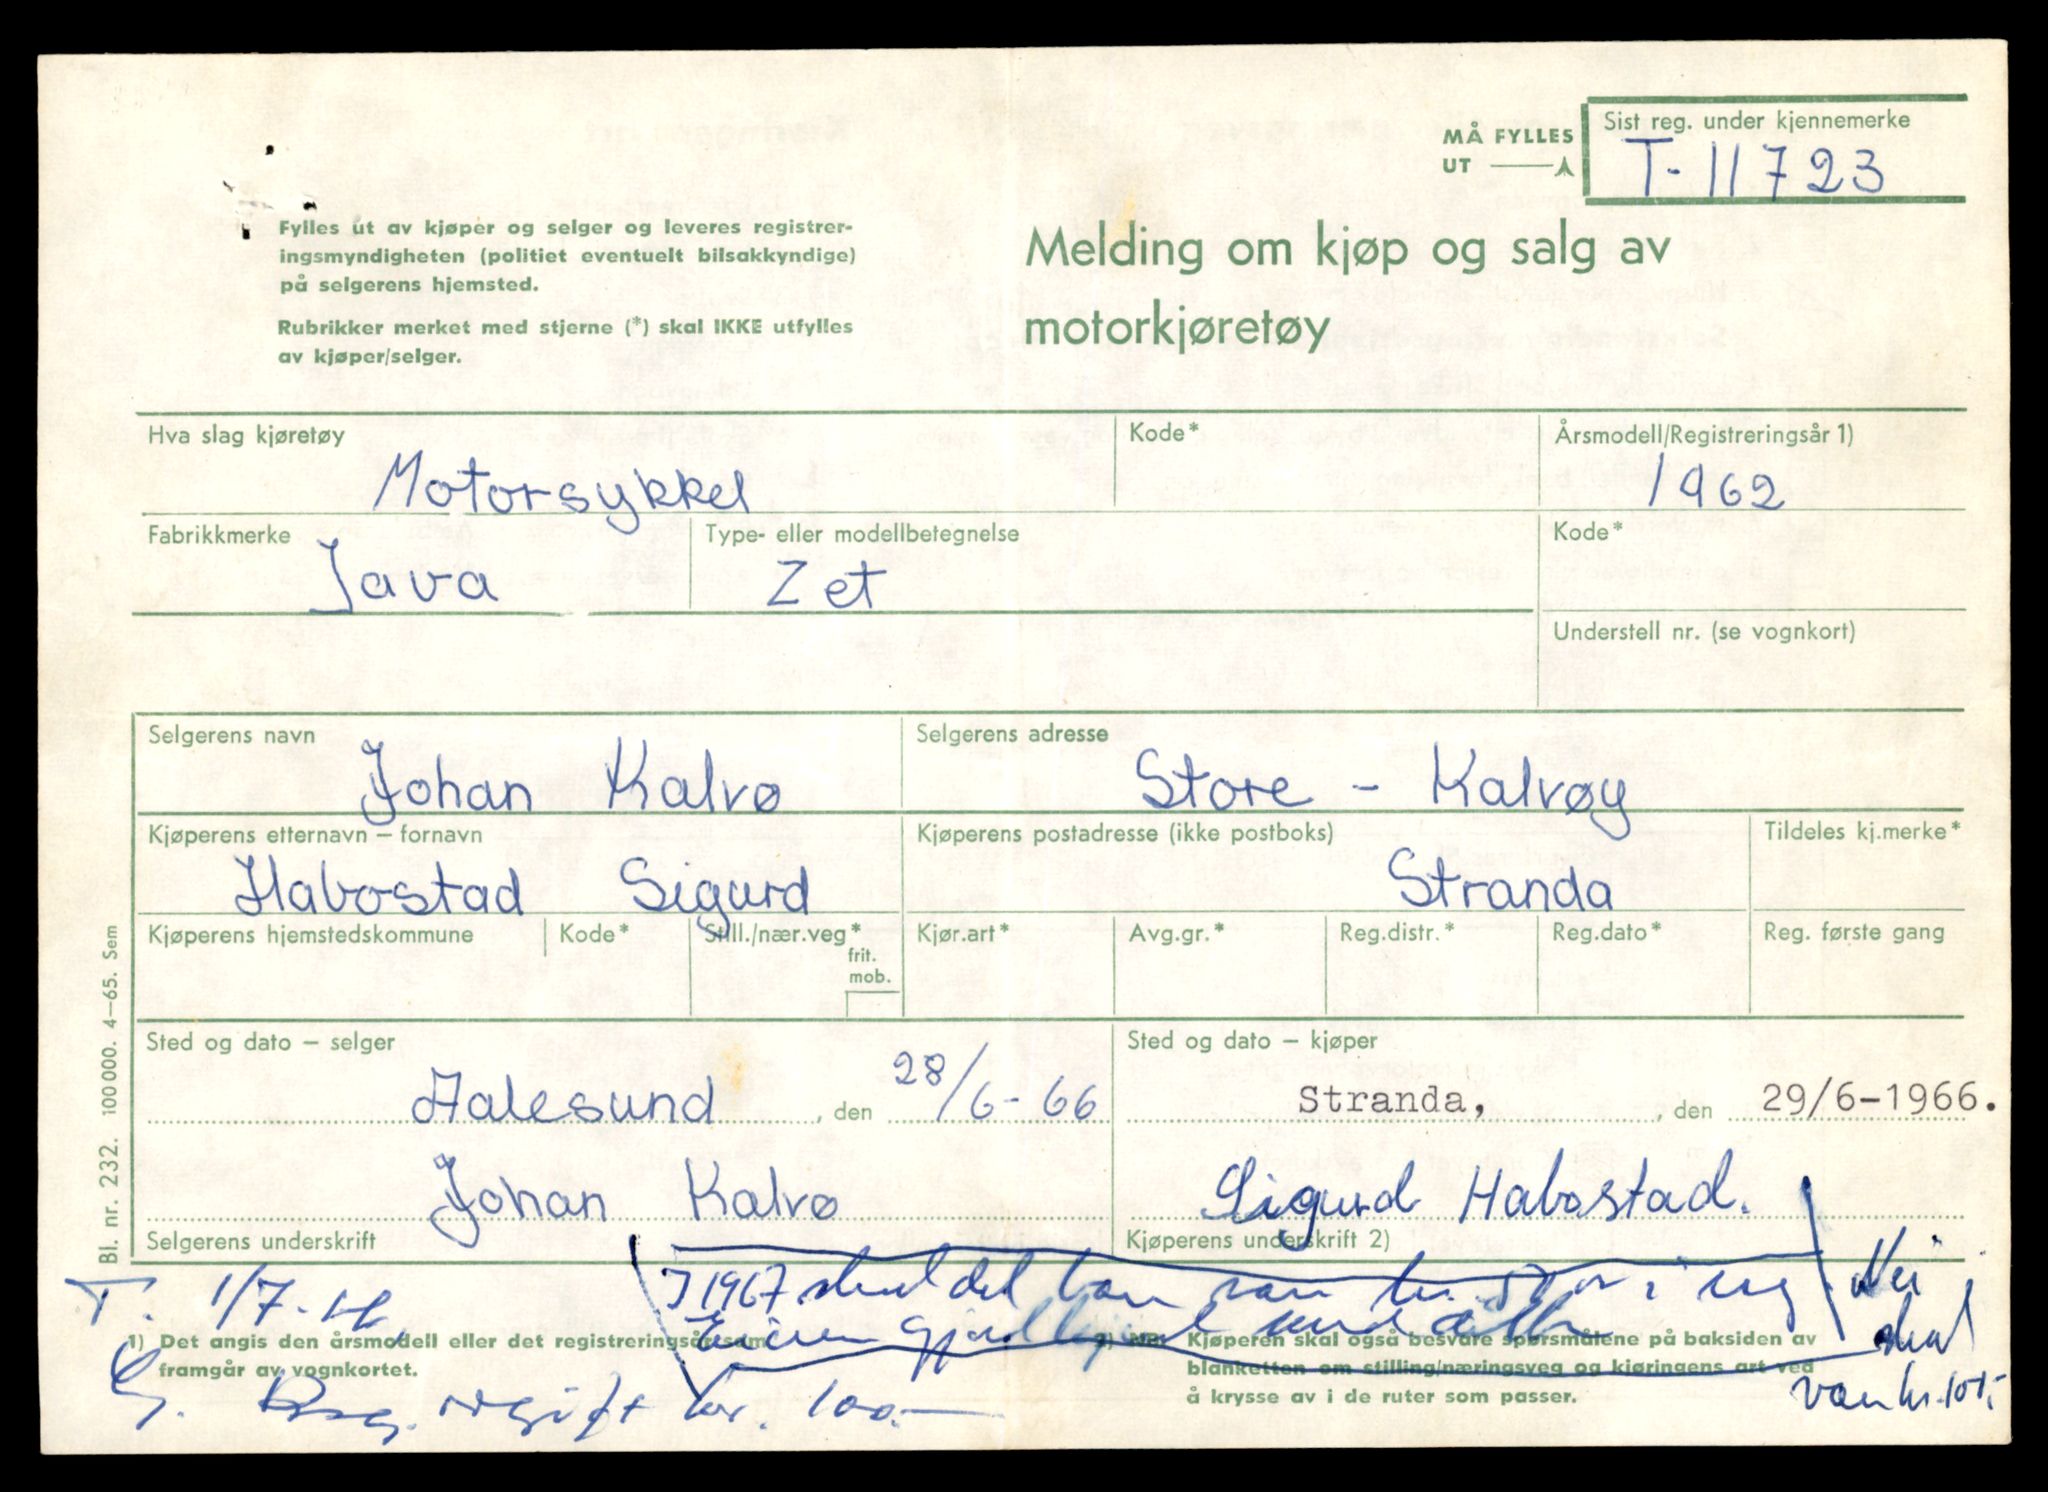 MÅ FYLLES
UT
Sist reg. under kjennemerke
T-11723
Fylles út av kjøper og selger og leveres registrer-
ingsmyndigheten (politiet eventuelt bilsakkyndige)
på selgerens hjemsted.
Rubrikker merket med stjerne (*) skal IKKE utfylles
av kjøper/selger.
Melding om kjøp og salg av
motorkjøretøy
Hva slag kjøretøy
Motorsykkel
Kode*
Årsmodell/Registreringsår 1)
1962
Fabrikkmerke
Java
Type- eller modellbetegnelse
Zet
Kode*
Understell nr. (se vognkort)
Selgerens navn
Johan Kalvø
Selgerens adresse
Store - Kalvøy
Kjøperens etternavn – fornavn
Habostad Sigurd
Kjøperens postadresse (ikke postboks)
Stranda
Tildeles kj.merke*
Kjøperens hjemstedskommune
Kode*
Still./nær.veg*
frit.
mob.
Kjør.art*
Avg.gr.*
Reg.distr.*
Reg.dato*
Reg. første gang
Sted og dato – selger
Aalesund, den 28/6-66
Sted og dato – kjøper
Stranda, , den 29/6-1966.
Johan Kalvø
Selgerens underskrift
Sigurd Habostad.
Kjøperens underskrift 2)
T. 1/7
I 1967 skul det
Nei
skul
1) Det angis den årsmodell eller det registreringsår som
framgår av vognkortet.
Eieren
2) NB! Kjøperen skal også besvare spørsmålene på baksiden av
blanketten om stilling/næringsveg og kjøringens art ved
å krysse av i de ruter som passer.
Reg. avgift kr. 100.-
kr. 101,-
Bl. nr. 232. 100 000. 4–65. Sem